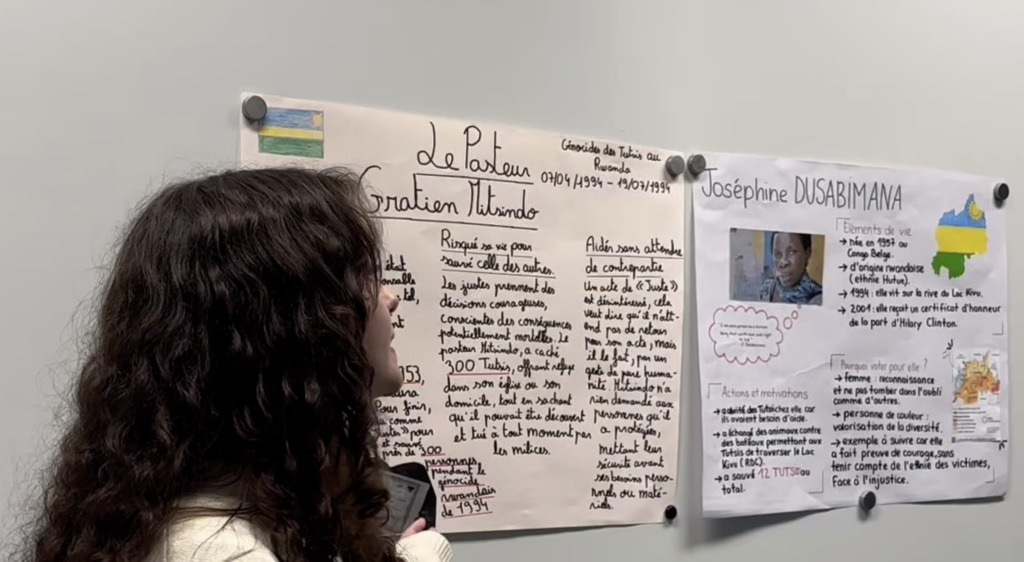 Le Pasteur
Gratien Mitsindo
Génocides des Tutsis au
Rwanda
07/04/1994 - 19/07/1994
Risqué sa vie pour
sauvé celle des autres.
Les justes prennent des
décisions courageuses,
conscientes des conséquences
potentiellement mortelles. Le
pasteur Mitsindo, a caché
300 Tutsis, offrant refuge
dans son église ou son
domicile, tout en sachant
qu'il pouvait être découvert
et tué à tout moment par
les milices.
Pour finir,
300
personnes
pendant le
génocide
rwandais
de 1994
Aidés sans attendre
de contrepartie
Un acte de «Juste»
est désintéressé, cela
veut dire qu'il n'att-
end pas de retour
pour son acte, mais
il le fait, par un
geste de pure huma-
nité. Mitsindo n'a
rien demandé aux
personnes qu'il
a protégées,
mettant leur
sécurité avant
ses besoins perso-
nnels ou maté-
riels.
Joséphine DUSABIMANA
Éléments de vie
→ née en 1957 au
Congo Belge.
→ d'origine rwandaise
(ethnie Hutue).
→ 1994 : elle vit sur la rive du Lac Kivu.
→ 2001 : elle reçoit un certificat d'honneur
de la part d'Hilary Clinton.
Actions et motivations
→ a abrité des Tutsis chez elle car
ils avaient besoin d'aide.
→ a échangé des animaux contre
des bateaux permettant aux
Tutsis de traverser le Lac
Kivu (RDC).
→ a sauvé 12 TUTSIS au
total.
Pourquoi voter pour elle ?
→ femme : reconnaissance
et ne pas tomber dans l'oubli
comme d'autres.
→ personne de couleur :
valorisation de la diversité.
→ exemple à suivre car elle
a fait preuve de courage, sans
tenir compte de l'ethnie des victimes,
face à l'injustice.